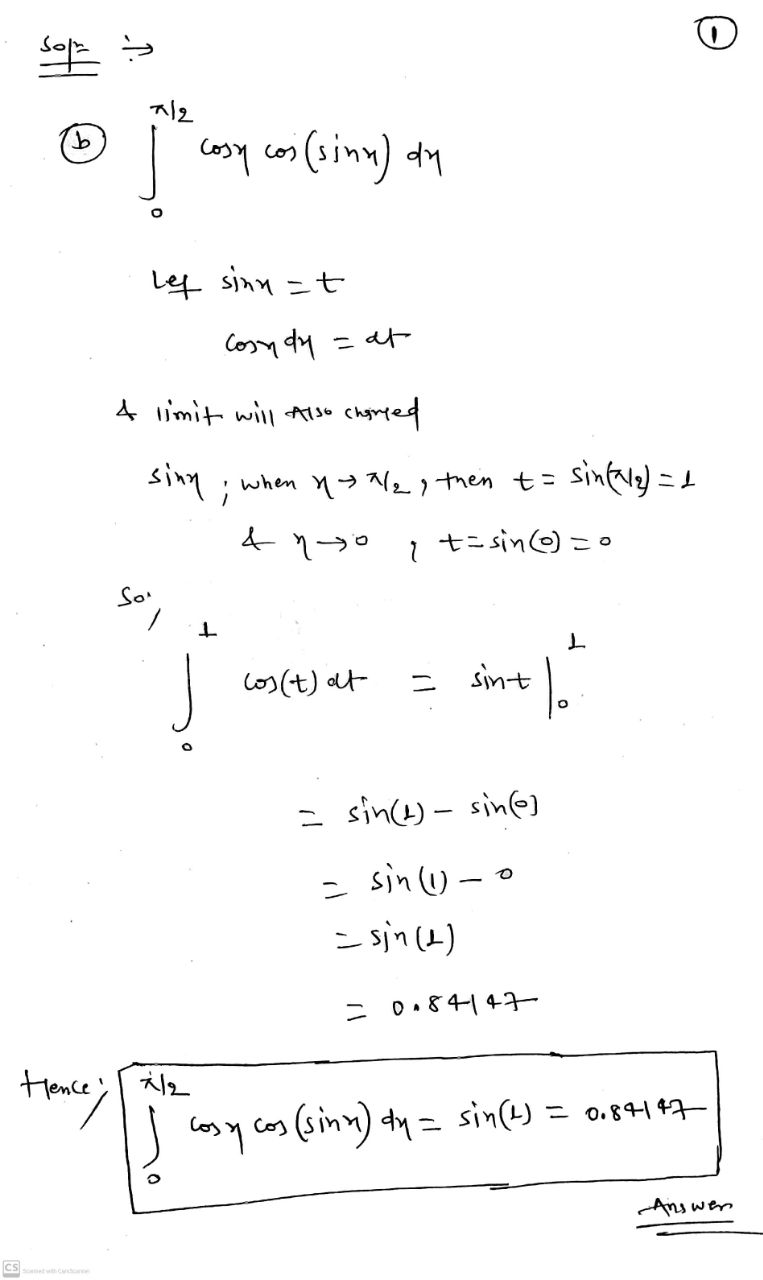 Solⁿ :→ ①
ⓑ ∫₀^{π/2} cosx cos(sinx) dx
Let sinx = t
cosx dx = dt
& limit will Also changed
sinx ; when x → π/2 , then t = sin(π/2) = 1
& x → 0 , t = sin(0) = 0
So,
∫₀¹ cos(t) dt = sint |₀¹
= sin(1) – sin(0)
= sin(1) – 0
= sin(1)
= 0.84147
Hence; ∫₀^{π/2} cosx cos(sinx) dx = sin(1) = 0.84147
Answer
CS Scanned with CamScanner